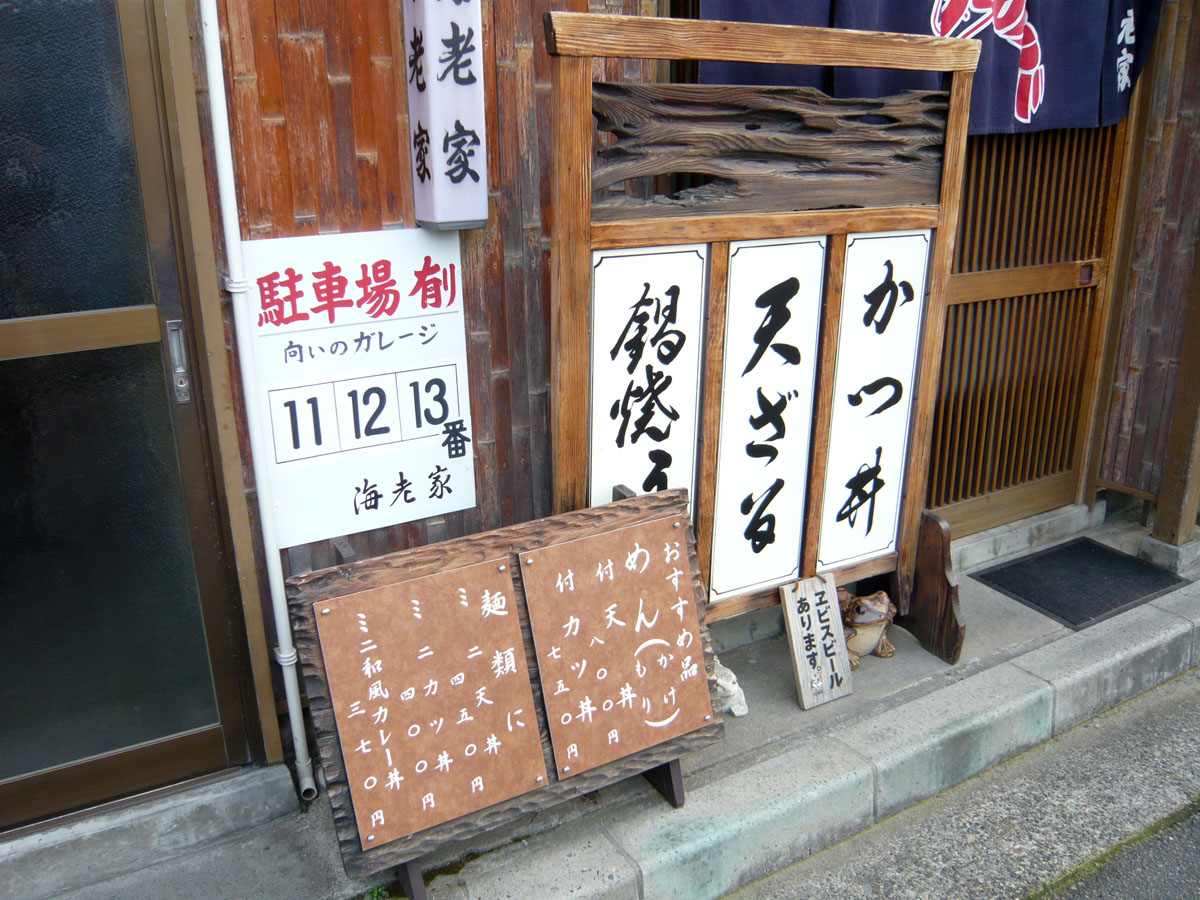 老家
老家
駐車場有リ
向いのガレージ
11 12 13番
海老家
かつ丼
天ざる
鍋焼
ヱビスビール
あります。
おすすめ品
めん(かけ もり)
付天丼
八〇〇円
付カツ丼
七五〇円
麺類に
ミニ天丼
四五〇円
ミニカツ丼
四〇〇円
ミニ和風カレー丼
三七〇円